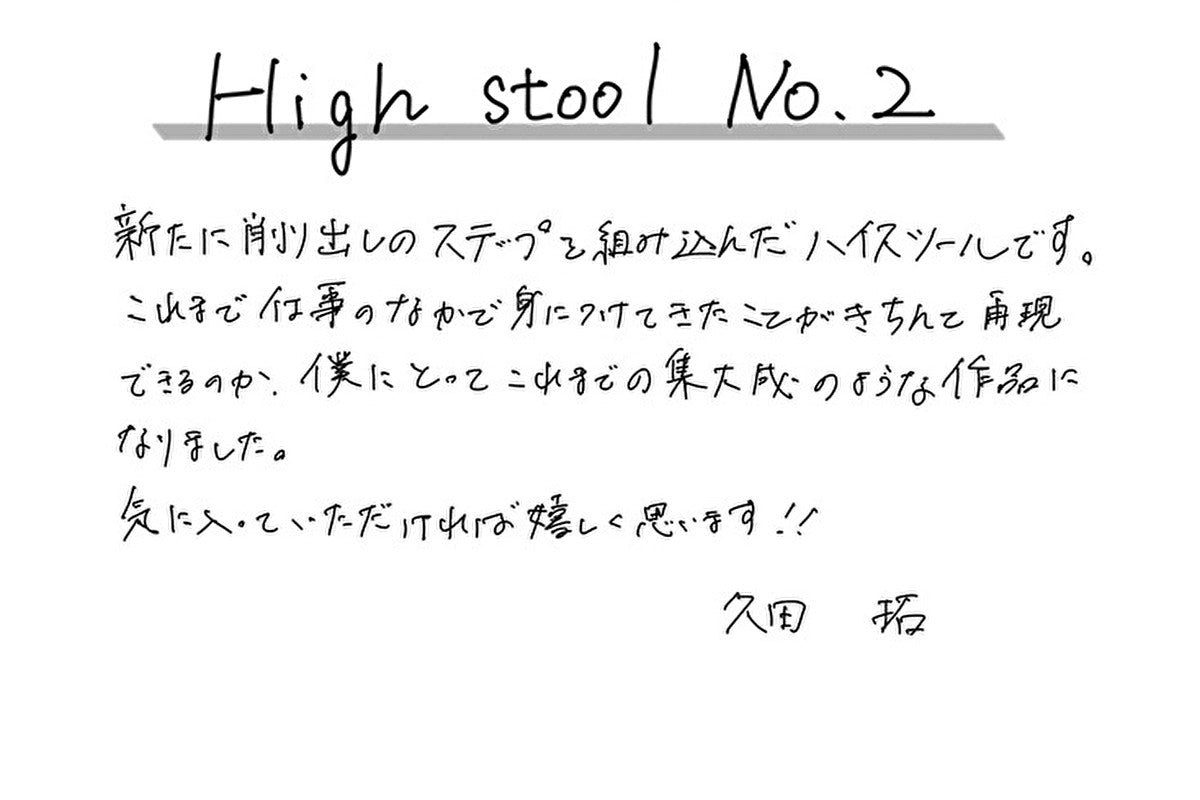 High stool No.2
新たに削り出しのステップを組み込んだハイスツールです。
これまで仕事のなかで身につけてきたことがきちんと再現
できるのか、僕にとってこれまでの集大成のような作品に
なりました。
気に入っていただければ嬉しく思います!!
久田 拓